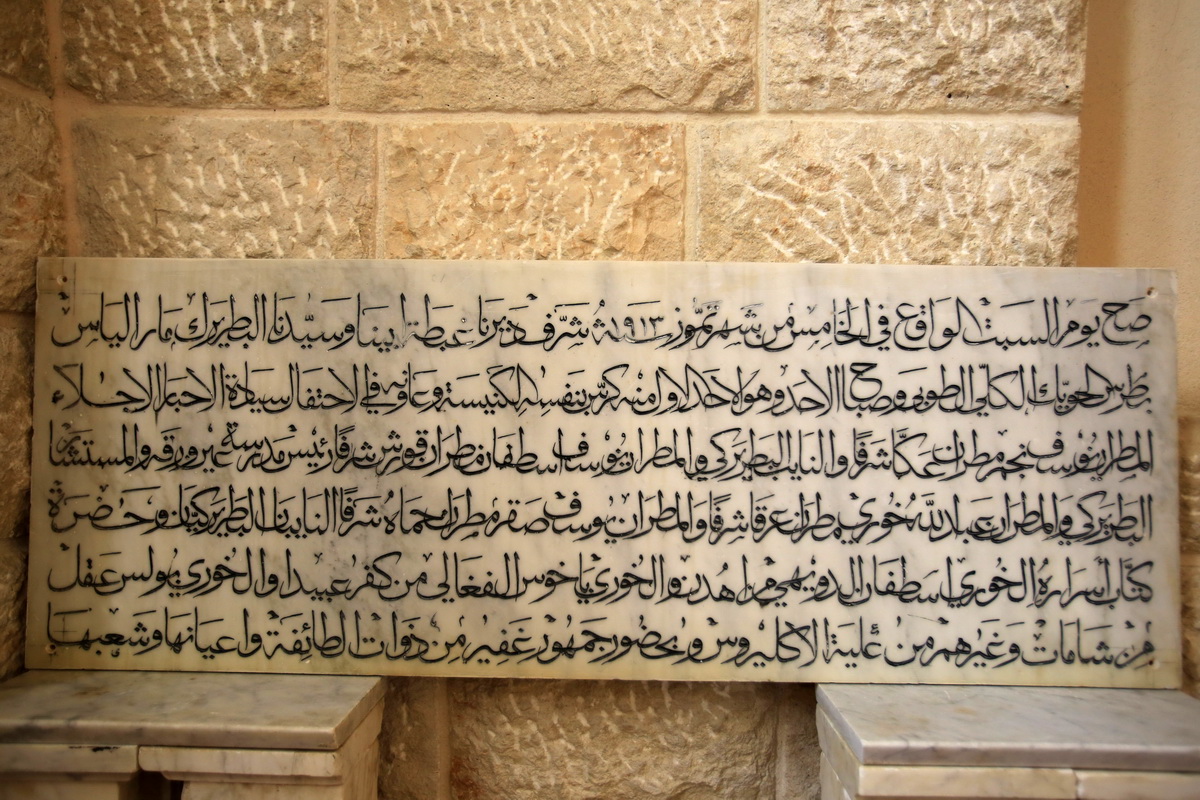 صح يوم السبت الواقع في الخامس من شهر تموز سنة ١٩١٣ شرّف ديرنا غبطة ابينا وسيّدنا البطريرك مار الياس
بطرس الحويّك الكلّي الطوبى وصباح الاحد وهو الاحد الاول منه كرّس بنفسه الكنيسة وعاونه في الاحتفال سيادة الاحبار الاجلاء
المطران يوسف نجم مطران عكّا شرفًا والنايب البطريركي والمطران يوسف اسطفان مطران قورش شرفًا رئيس مدرسة عين ورقه والمستشار
البطريركي والمطران عبد الله خوري مطران عرقا شرفًا والمطران يوسف صقر مطران حماه شرفًا النايبان البطريركيّان وحضرة
كتّاب أسراره الخوري اسطفان الدويهي من اهدن والخوري ياخوس الفغالي من كفرعبيدا والخوري بولس عقل
من شامات وغيرهم من علية الاكليروس وبحضور جمهور غفير من ذوات الطائفة واعيانها وشعبها